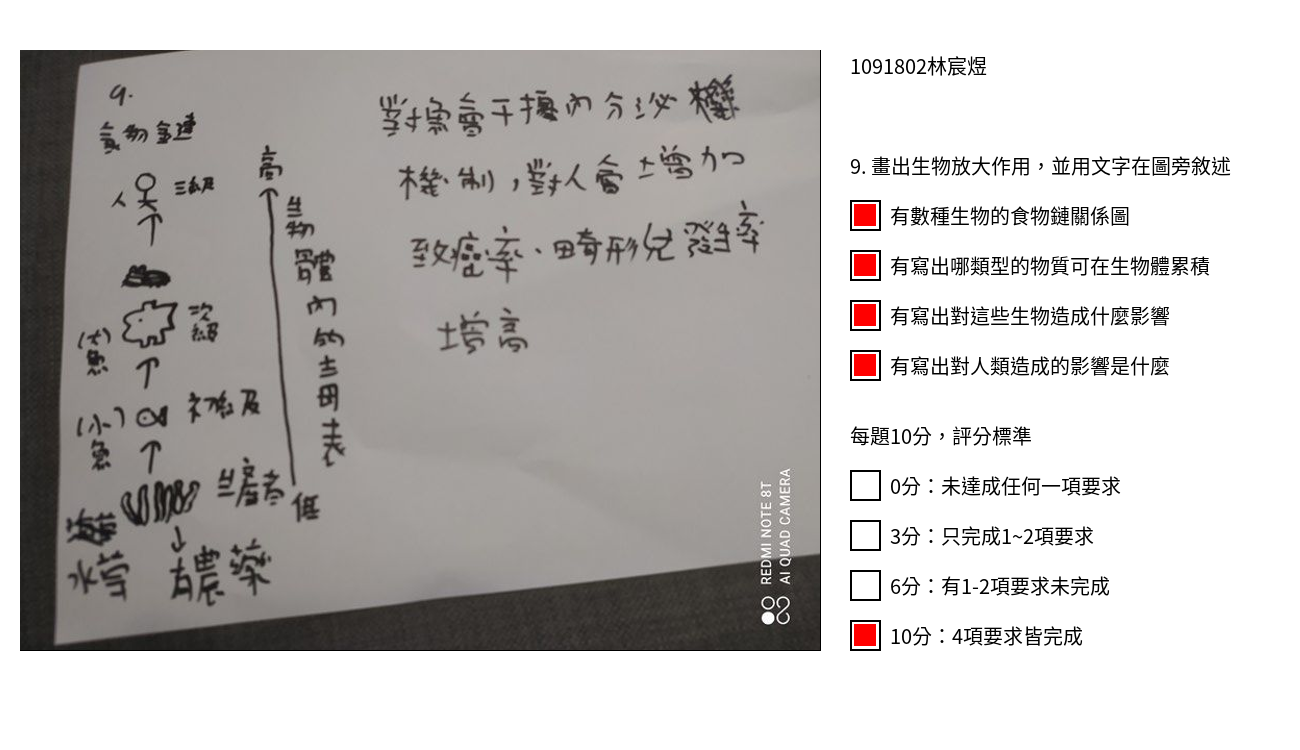 9.
食物鏈
高
人
三級
生物體內的土毒表
(大)魚
次級
(小)魚
初級
生產者
低
水草
有農藥
對魚會干擾內分泌
機制，對人會增加
致癌率、畸形兒發生率
增高
REDMI NOTE 8T
AI QUAD CAMERA
1091802林宸煜
9. 畫出生物放大作用，並用文字在圖旁敘述
有數種生物的食物鏈關係圖
有寫出哪類型的物質可在生物體累積
有寫出對這些生物造成什麼影響
有寫出對人類造成的影響是什麼
每題10分，評分標準
0分：未達成任何一項要求
3分：只完成1~2項要求
6分：有1-2項要求未完成
10分：4項要求皆完成